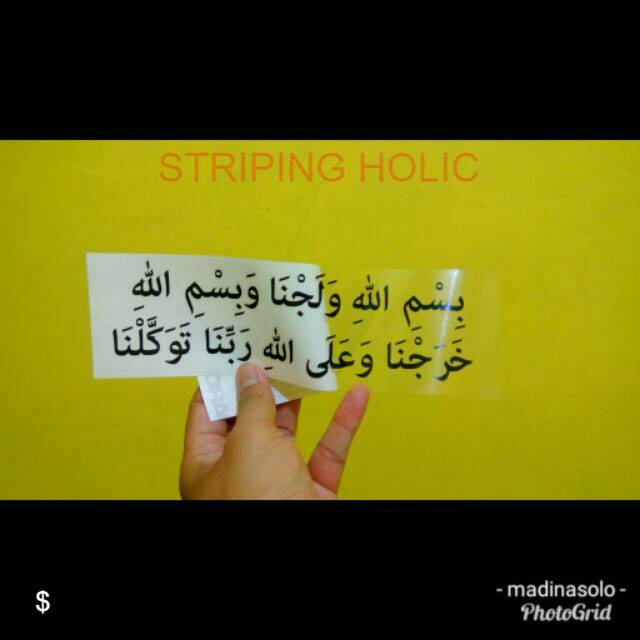 STRIPING HOLIC
بِسْمِ اللهِ وَلَجْنَا وَبِسْمِ اللهِ
خَرَجْنَا وَعَلَى اللهِ رَبِّنَا تَوَكَّلْنَا
$
- madinasolo -
PhotoGrid